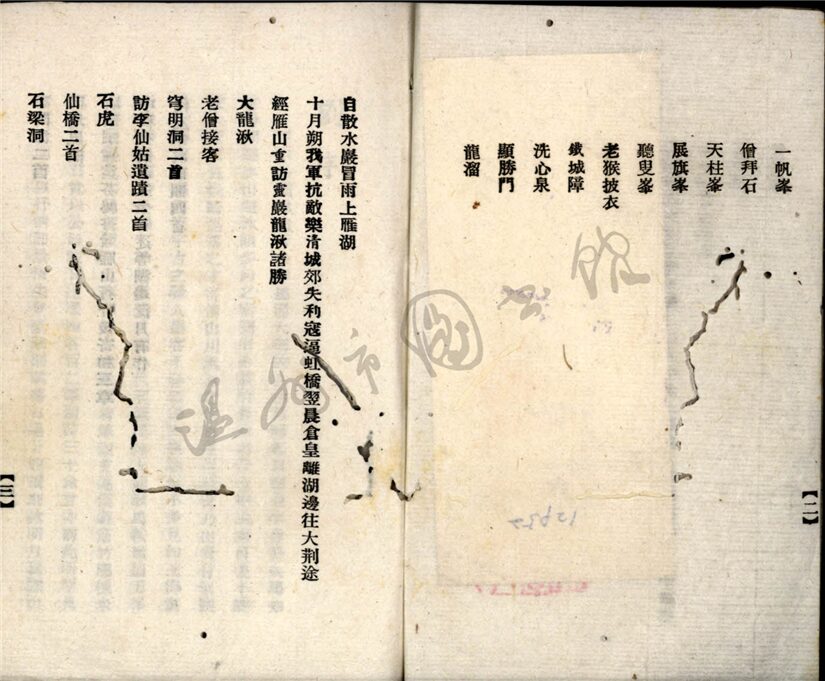 一帆峯
僧拜石
天柱峯
展旗峯
聽叟峯
老猴披衣
鐵城障
洗心泉
顯勝門
龍溜
【二】
自散水巖冒雨上雁湖
十月朔我軍抗敵樂清城郊失利寇逼虹橋翌晨倉皇離湖邊往大荆途
經雁山重訪靈巖龍湫諸勝
大龍湫
老僧接客
穹明洞二首
訪李仙姑遺蹟二首
石虎
仙橋二首
石梁洞
【三】
温州市圖書館